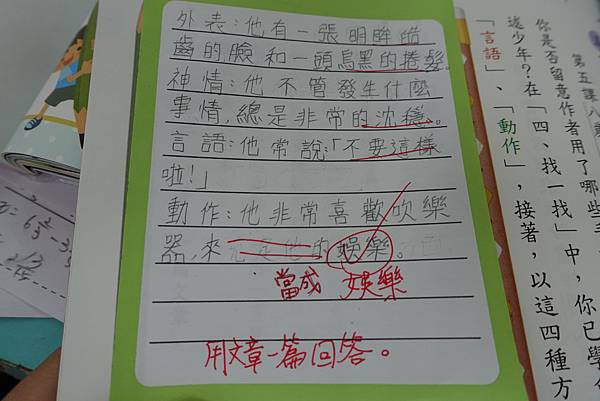 外表:他有一張明眸皓
齒的臉和一頭烏黑的捲髮。
神情:他不管發生什麼
事情,總是非常的沈穩。
言語:他常說:「不要這樣
啦!」
動作:他非常喜歡吹樂
器,來的娛樂。
當成 娛樂
用文章一篇回答。
第五課
你是否留意作者用了哪些
述少年?在「四、找一找」中,你已學
「言語」、「動作」,接著,以這四種方